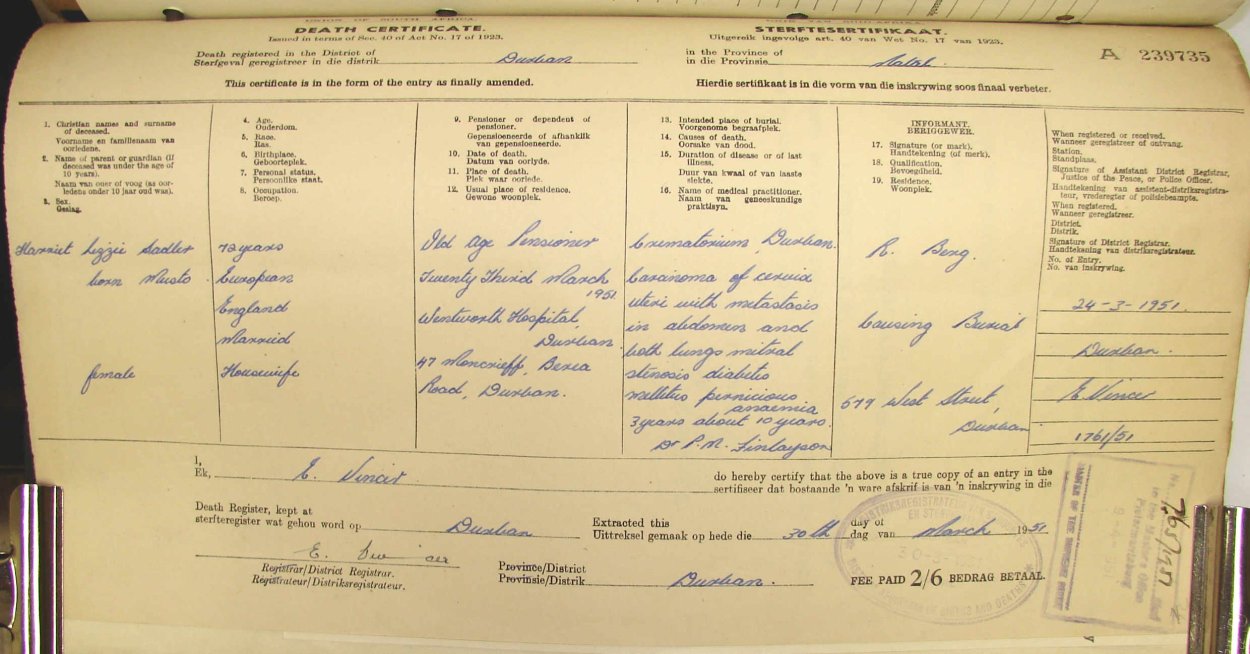 DEATH CERTIFICATE.
Issued in terms of Sec. 40 of Act No. 17 of 1923.
STERFTESERTIFIKAAT.
Uitgereik ingevolge art. 40 van Wet No. 17 van 1923.
Death registered in the District of
Sterfgeval geregistreer in die distrik Durban
in the Province of
in die Provinsie Natal.
A 239735
This certificate is in the form of the entry as finally amended.
Hierdie sertifikaat is in die vorm van die inskrywing soos finaal verbeter.
1. Christian names and surname
of deceased.
Voorname en familienaam van
oorledene.
2. Name of parent or guardian (if
deceased was under the age of
10 years).
Naam van ouer of voog (as oor-
ledene onder 10 jaar oud was).
3. Sex.
Geslag.
Harriet Lizzie Sadler
born Musto
female
4. Age.
Ouderdom.
5. Race.
Ras.
6. Birthplace.
Geboorteplek.
7. Personal status.
Persoonlike staat.
8. Occupation.
Beroep.
72 years
European
England
Married
Housewife
9. Pensioner or dependent of
pensioner.
Gepensioeneerde of afhanklik
van gepensioeneerde.
10. Date of death.
Datum van oorlyde.
11. Place of death.
Plek waar oorlede.
12. Usual place of residence.
Gewone woonplek.
Old Age Pensioner
Twenty Third March
1951
Wentworth Hospital,
Durban
47 Moncrieff, Berea
Road, Durban.
13. Intended place of burial.
Voorgenome begraafplek.
14. Causes of death.
Oorsake van dood.
15. Duration of disease or of last
illness.
Duur van kwaal of van laaste
siekte.
16. Name of medical practitioner.
Naam van geneeskundige
praktisyn.
Crematorium Durban.
Carcinoma of cervix
uteri with metastasis
in abdomen and
both lungs mitral
stenosis diabetis
mellitus pernicious
anaemia
3 years about 10 years.
Dr P. M. Finlayson
INFORMANT.
BERIGGEWER.
17. Signature (or mark).
Handtekening (of merk).
18. Qualification.
Bevoegdheid.
19. Residence.
Woonplek.
R. Berg.
Causing Burial
579 West Street,
Durban
When registered or received.
Wanneer geregistreer of ontvang.
Station.
Standplaas.
Signature of Assistant District Registrar,
Justice of the Peace, or Police Officer.
Handtekening van assistent-distriksregistra-
teur, vrederegter of polisiebeampte.
When registered.
Wanneer geregistreer.
District.
Distrik.
Signature of District Registrar.
Handtekening van distriksregistrateur.
No. of Entry.
No. van inskrywing.
24-3-1951.
Durban.
E. Vincer
1761/51
I,
Ek, E. Vincer
do hereby certify that the above is a true copy of an entry in the
sertifiseer dat bostaande 'n ware afskrif is van 'n inskrywing in die
Death Register, kept at
sterfteregister wat gehou word op Durban
Extracted this
Uittreksel gemaak op hede die 30th
day of
dag van March 1951
E. Vincer
Registrar/District Registrar.
Registrateur/Distriksregistrateur.
Province/District
Provinsie/Distrik Durban.
FEE PAID 2/6 BEDRAG BETAAL.